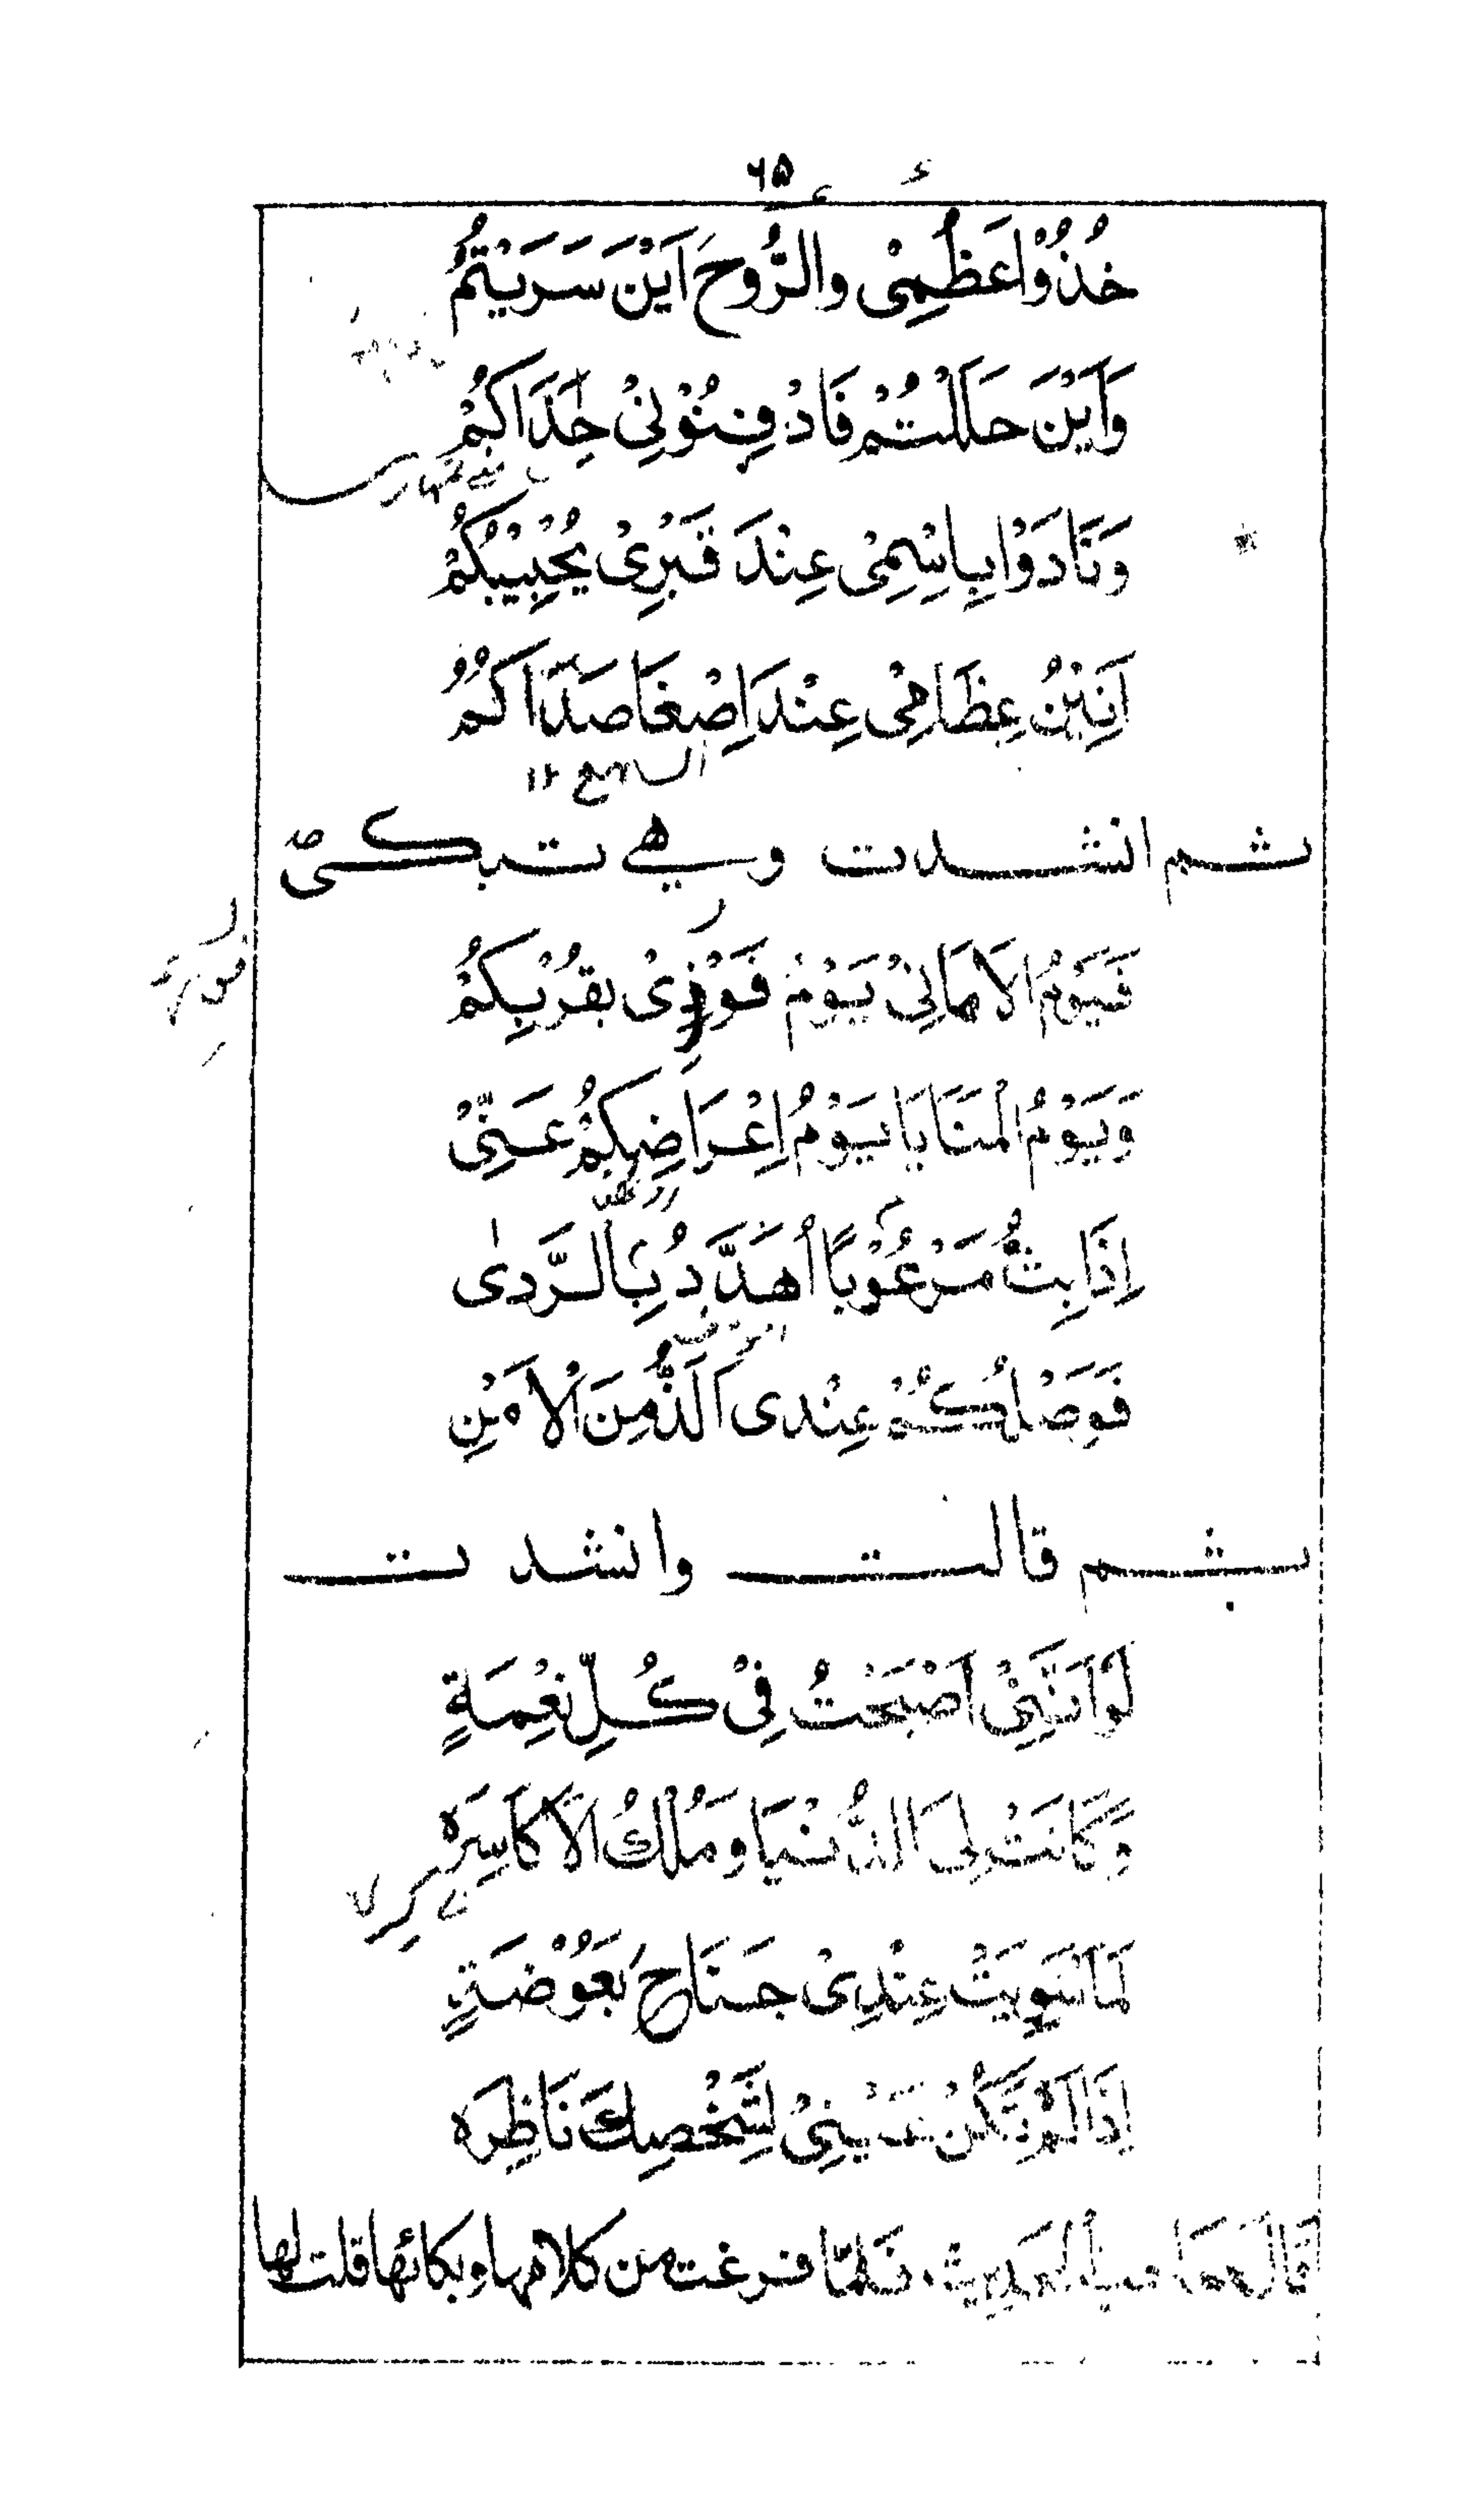 ۶۵
خُذُوْا عَظُمِیْ والرُّوحَ اَیْنَ سَرَیْتُمُ
وَاَیْنَ حَلَلْتُمْ فَادْفِنُوْنِیْ حِذَاکُمْ
وَنَادَوْا بِاسْمِیْ عِنْدَ قَبْرِیْ یُجِیْبُکُمْ
اَنِیْنُ عِظَامِیْ عِنْدَ اِصْغَا صَدَاکُمُ
السمع ۱۲
ثم انشدت وھے تبکی
فَیَوْمُ الاَمَانِیْ یَوْمُ فَوْزِیْ بقُرْبِکُمُ
وَیَوْمُ الْمَنَایَا یَوْمُ اِعْرَاضِکُمْ عَنِّیْ
اِذَا بِتُّ مَرْعُوْبًا اُھَدَّدُ بِالرَّدیٰ
فَوَصْلُکُمْ عِنْدی اَلَذُّ مِنَ الْاَمْنِ
ثم قالت وانشدت
لَوْ اَنَّنِیْ اَصْبَحْتُ فِیْ کُلِّ نِعْمَةٍ
وَکَانَتْ لِیَ الدُّنْیَا وَمُلْكُ الاَکَاسِرَہ
لَمَا سَوِیَتْ عِنْدِیْ جَنَاحَ بَعُوْضَةٍ
اِذَا لَمْ تَکُنْ عَیْنِیْ لِشَخْصِكَ نَاظِرَہ
قَالَ صَاحب الحدیث فَلَمَّا فرغت من کلامها وبکائها قلت لها